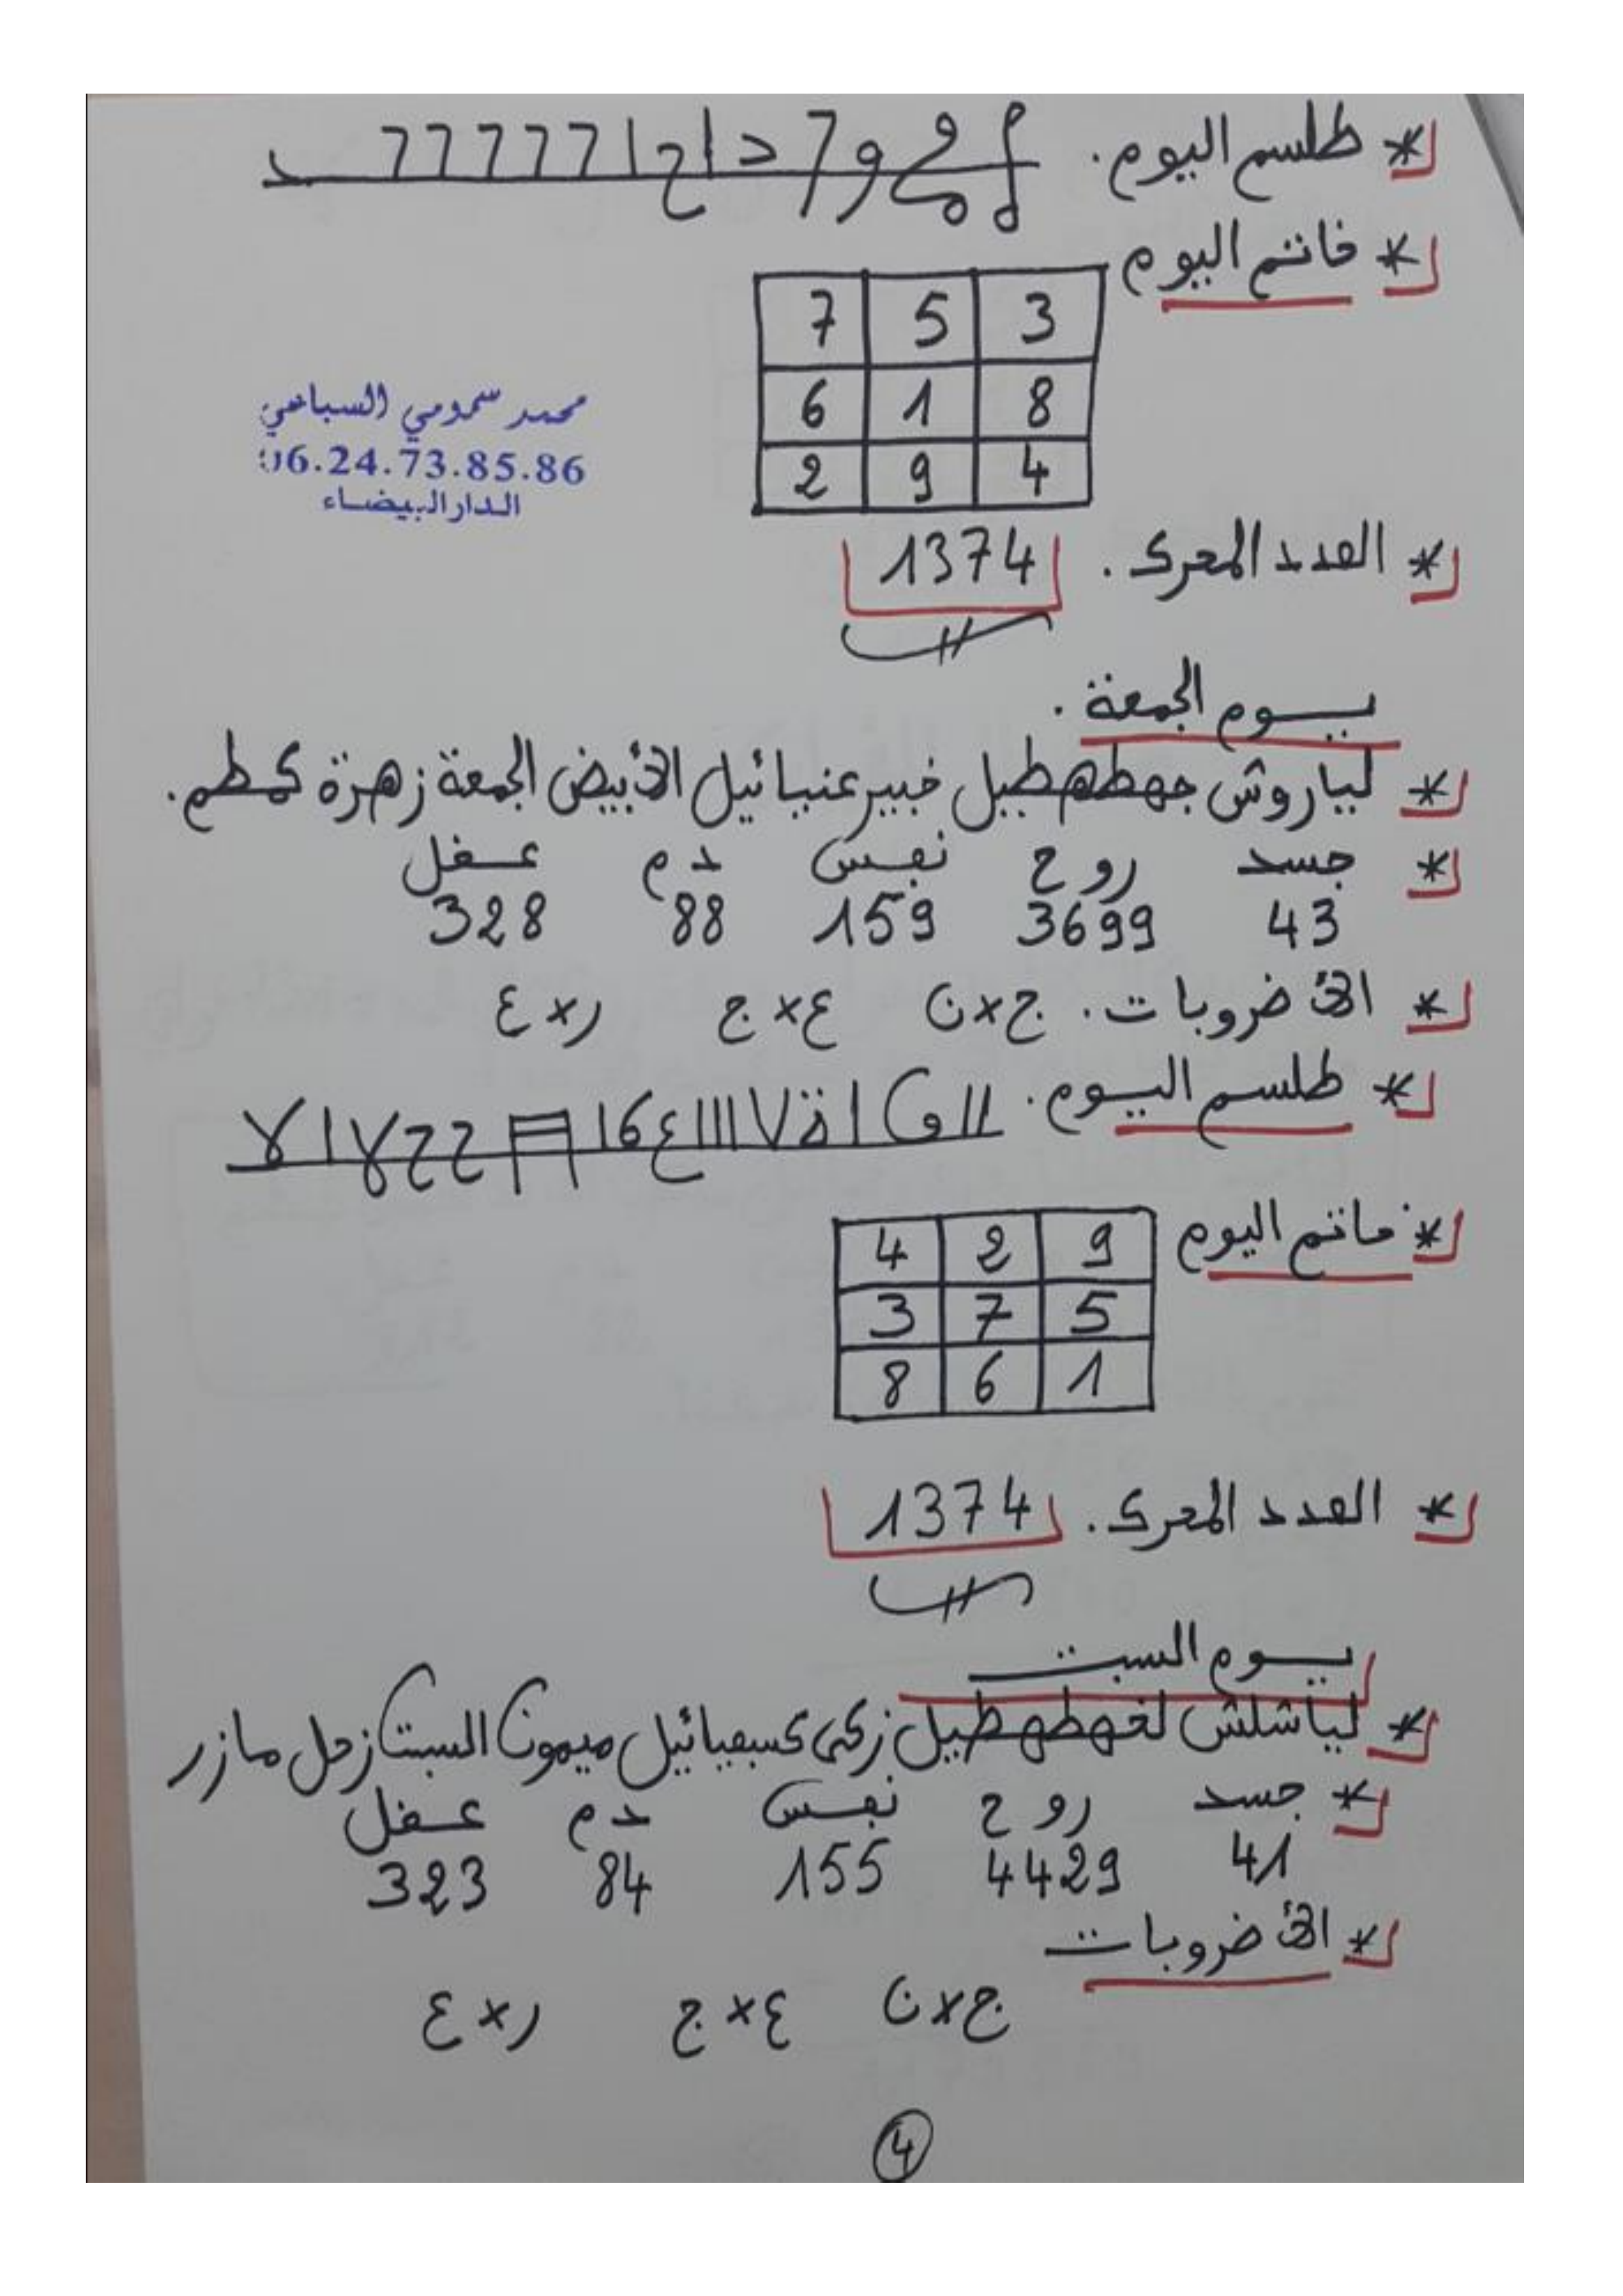 * طلسم اليوم.
* خاتم اليوم
7 5 3
6 1 8
2 9 4
محمد سمومي السباعي
06.24.73.85.86
الدار البيضاء
* العدد المحرك. 1374
يوم الجمعة.
* لياروش جهطهطيل خبير عنيائيل الأبيض الجمعة زهرة كمطم.
* جسد روح نفس دم عقل
43 3699 159 88 328
* الأضروبات. ج×ن ع×ج ر×ع
* طلسم اليوم.
* خاتم اليوم
4 2 9
3 7 5
8 6 1
* العدد المحرك. 1374
يوم السبت
* لياشلش لخهطهطيل زكي كسفيائيل ميمون السبت زحل مازر
* جسد روح نفس دم عقل
41 4429 155 84 323
* الأضروبات
ج×ن ع×ج ر×ع
4